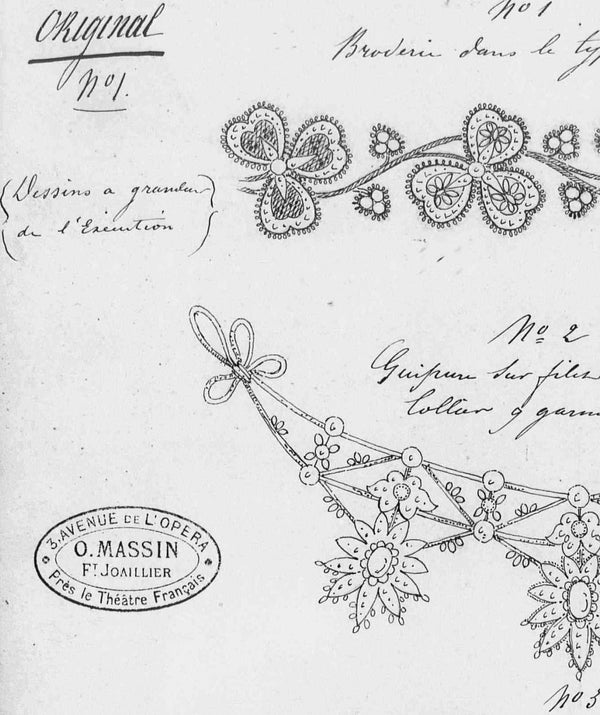 Original
No 1.
No 1
Broderie dans le ty
Dessins a grandeur
de l'Exécution
No 2
Guipure sur filet
Collier g garn
3. AVENUE DE L'OPERA
O. MASSIN
FT JOAILLIER
Près le Théâtre Français
No 3